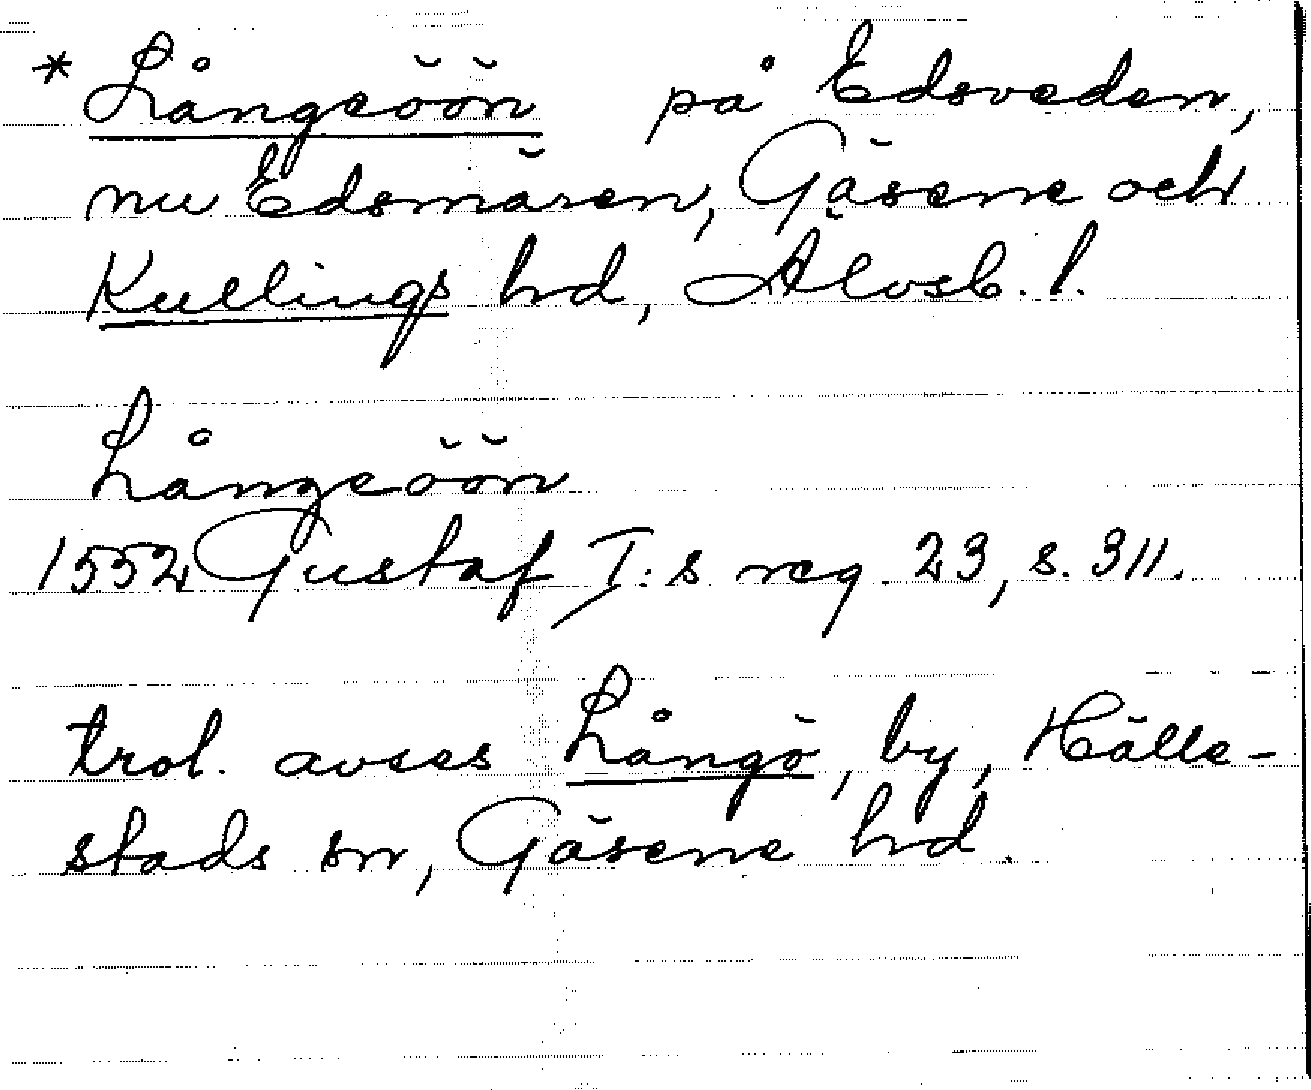 * Långeöön på Edsveden,
nu Edsmären, Gäsene och
Kullings hd, Älvsb. l.
Långeöön
1552 Gustaf I:s reg. 23, s. 311.
trol. avses Långö, by, Hälle-
stads sn, Gäsene hd.